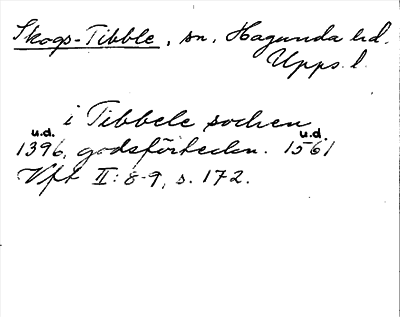 Skogs-Tibble, sn, Hagunda hd.
Upps. l.
i Tibbele sochen
u.d. u.d.
1396, godsförteckn. 1561
Vft II: 8-9, s. 172.